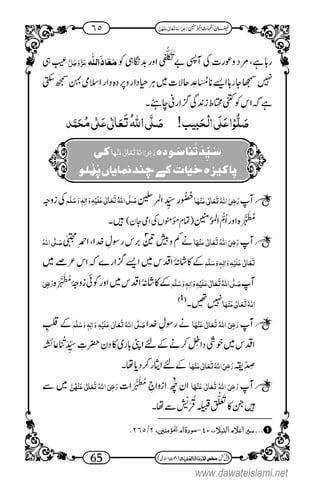 ٦٥
رہا ہے، مرد و عورت کی یہ آپسی بے تکلفی اور بدنگاہی کو مَعَاذَ اللہ عَزَّوَجَلَّ عیب ہی
نہیں سمجھا جا رہا ایسے نامساعد حالات میں ہر حیا دار و پردہ دار اسلامی بہن سمجھ سکتی
ہے کہ اس کو کتنی محتاط زندگی گزارنی چاہئے۔
صَلُّوْا عَلَى الْحَبِيْب! صَلَّى اللهُ تَعَالٰى عَلٰى مُحَمَّد
سیّدَتُنا سَودہ رَضِیَ اللہُ تَعَالٰی عَنْہَا کی
پاکیزہ حیات کے چند نمایاں پہلو
آپ رَضِیَ اللہُ تَعَالٰی عَنْہَا حُضُور سیّدُ المرسلین صَلَّی اللہُ تَعَالٰی عَلَیْہِ وَاٰلِہٖ وَسَلَّم کی زوجہ
مُطَہَّرہ اور اُمُّ المؤمنین (تمام مؤمنوں کی امی جان) ہیں۔
آپ رَضِیَ اللہُ تَعَالٰی عَنْہَا نے کم و بیش تین برس رسولِ خدا، احمدِ مجتبیٰ صَلَّی اللہُ
تَعَالٰی عَلَیْہِ وَاٰلِہٖ وَسَلَّم کے کاشانۂ اقدس میں ایسے گزارے کہ اس عرصے میں
آپ صَلَّی اللہُ تَعَالٰی عَلَیْہِ وَاٰلِہٖ وَسَلَّم کے کاشانۂ اقدس میں اور کوئی زوجۂ مُطَہَّرہ رَضِیَ
اللہُ تَعَالٰی عَنْہَا نہیں تھیں۔(1)
آپ رَضِیَ اللہُ تَعَالٰی عَنْہَا نے رسولِ خدا صَلَّی اللہُ تَعَالٰی عَلَیْہِ وَاٰلِہٖ وَسَلَّم کے قلبِ
اقدس میں خوشی داخل کرنے کے لئے اپنی باری کا دن حضرتِ سیّدَتُنا عائشہ
صِدّیقہ رَضِیَ اللہُ تَعَالٰی عَنْہَا کے لئے ایثار کر دیا تھا۔
آپ رَضِیَ اللہُ تَعَالٰی عَنْہَا ان چھ ازواجِ مُطَہَّرات رَضِیَ اللہُ تَعَالٰی عَنْہُنَّ میں سے
ہیں جن کا تعلق قبیلہ قریش سے تھا۔
1 … سیر اعلام النبلاء، ٤٠-سودة ام المؤمنین، ٢/٢٦٥.
65
www.dawateislami.net